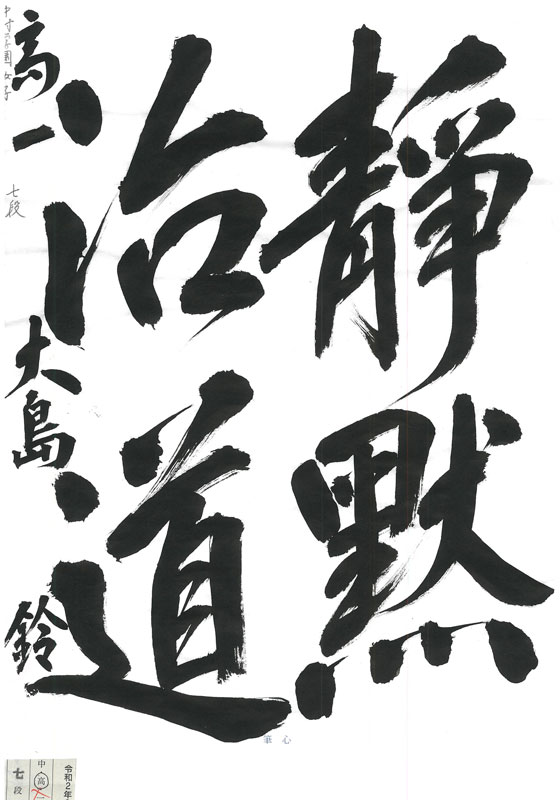 靜默
治道
高一
七段
大島
鈴
中村学園女子
心筆
令和2年
中 高 一
七段